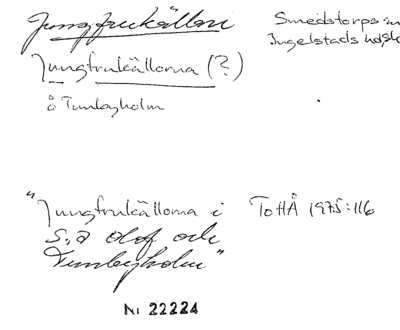 Jungfrukällan
Smedstorps sn
Ingelstads hd, Sk
Jungfrukällorna (?)
å Tunbyholm
"Jungfrukällorna i
ToHÅ 1975:116
S:a Olof och
Tunbyholm"
Nr 22224